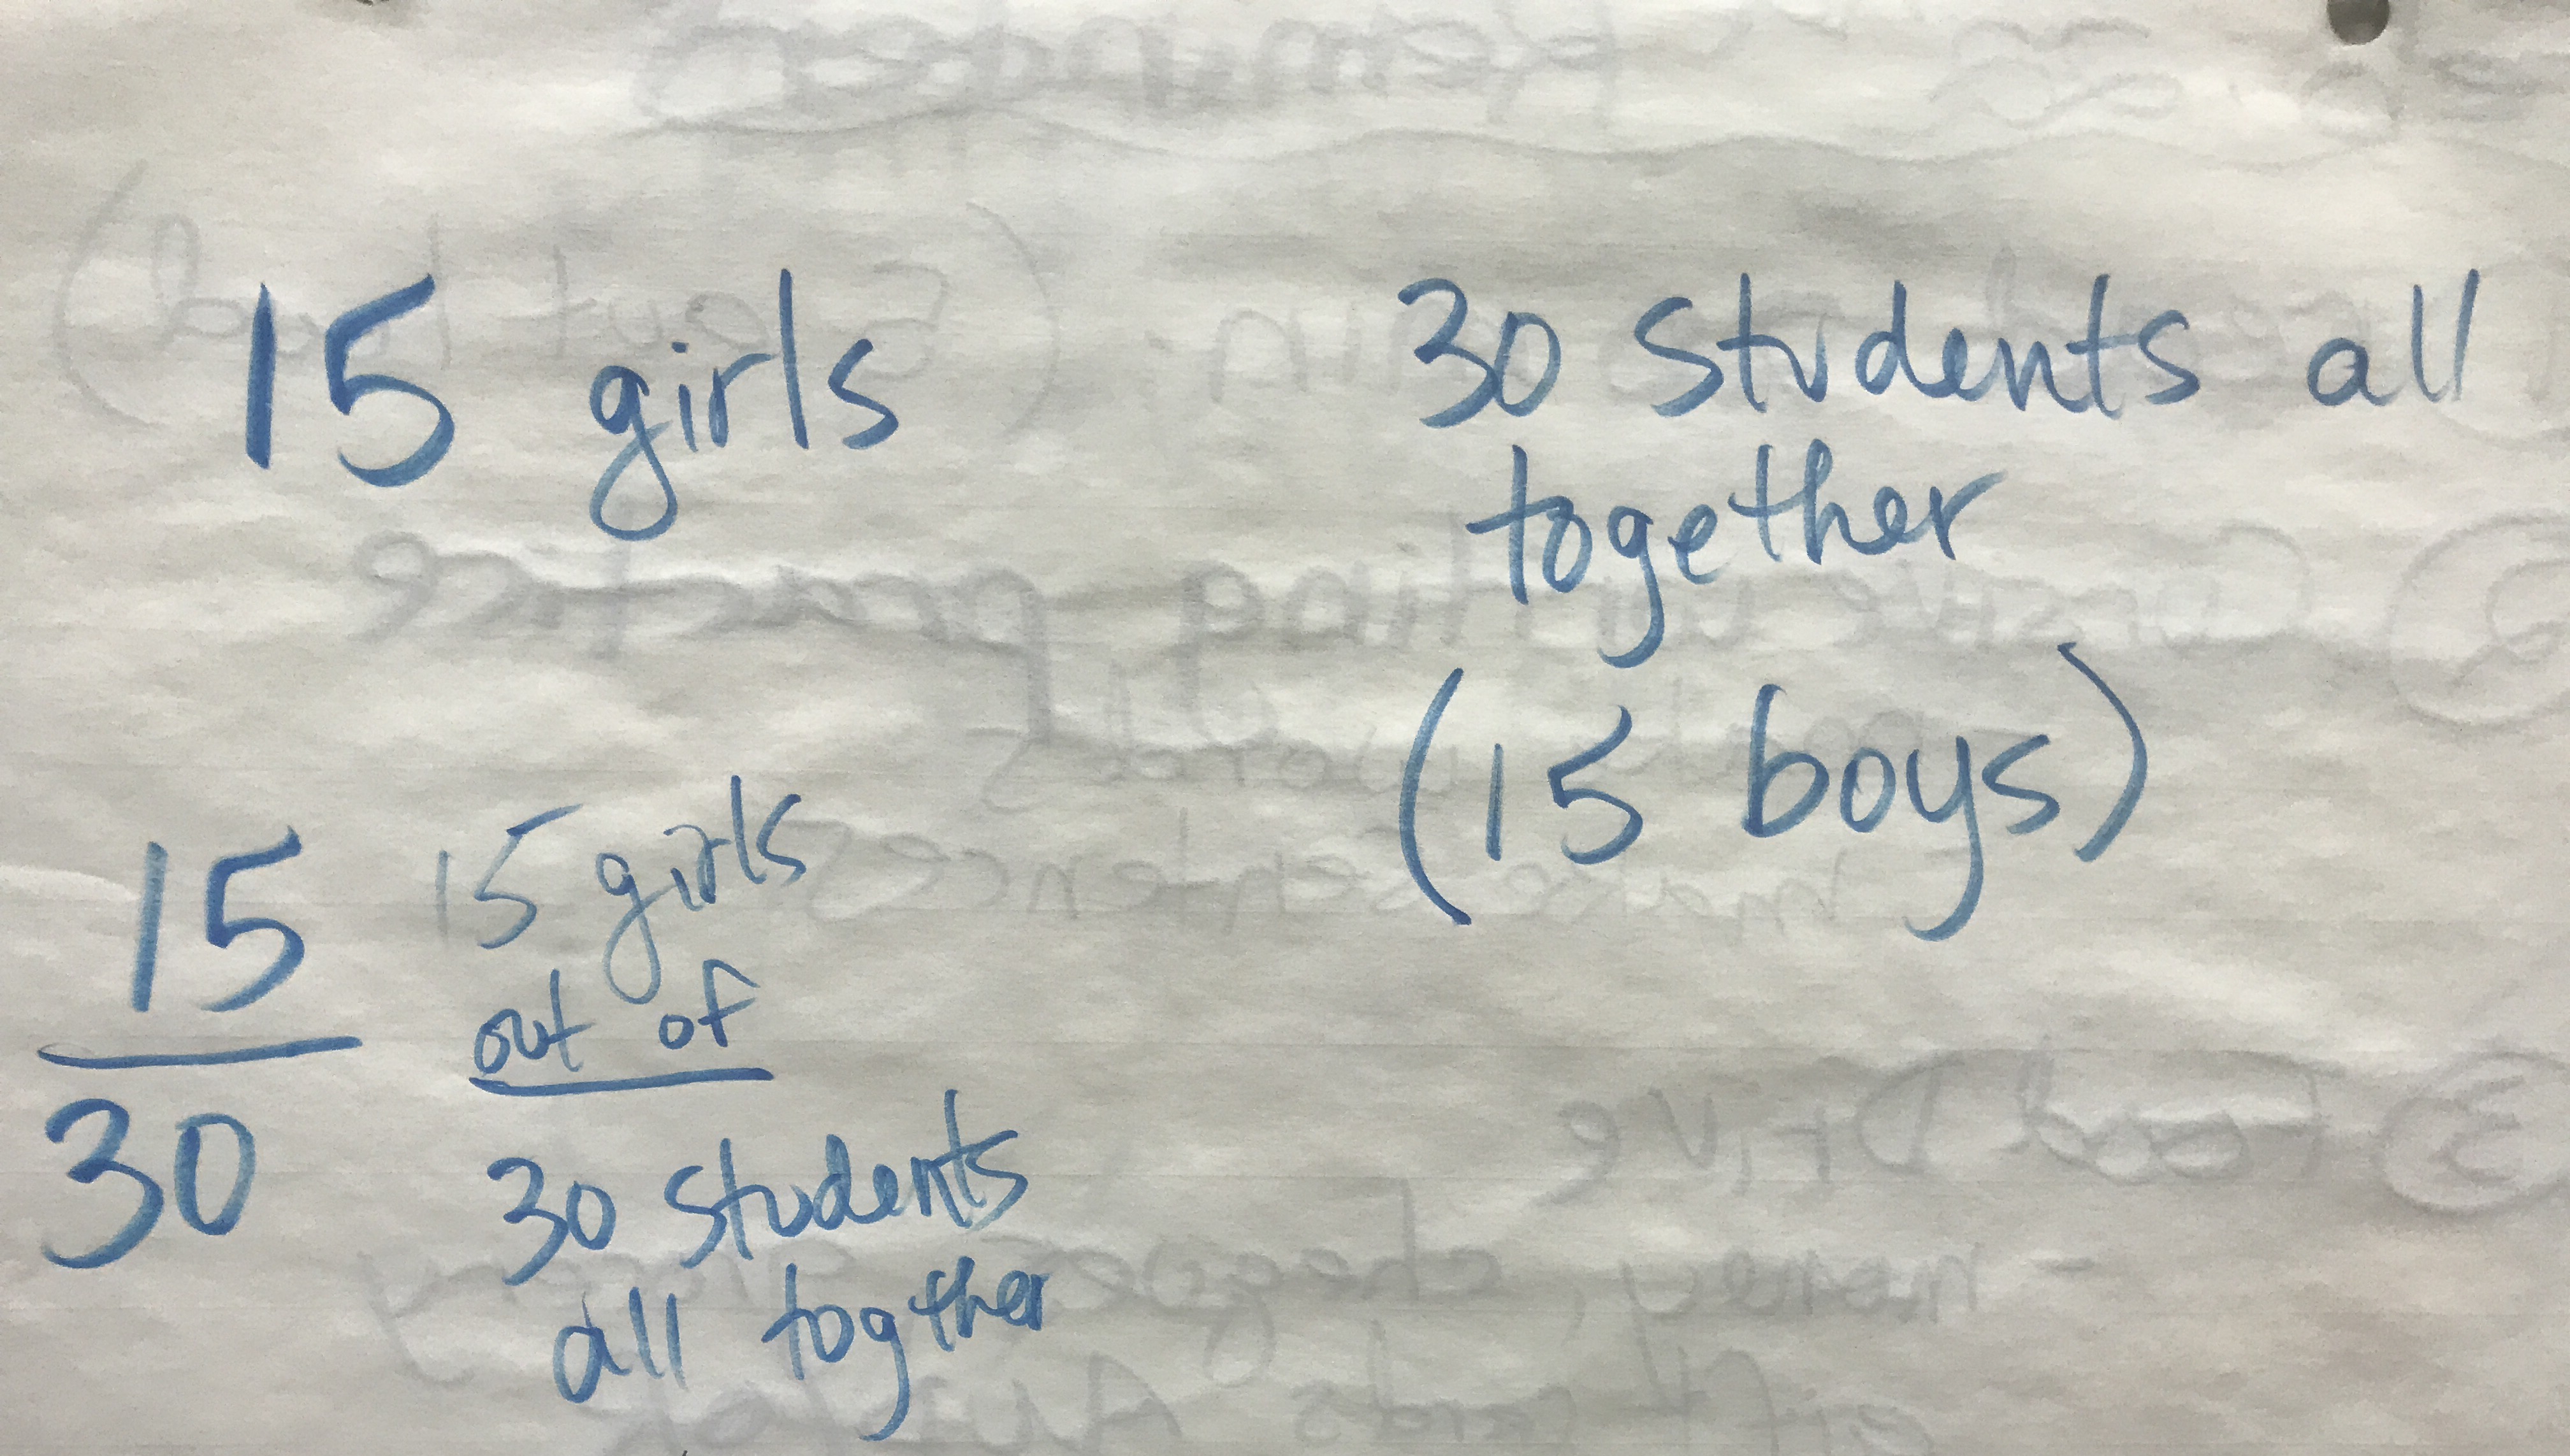 15 girls
30 students all
together
(15 boys)
15
30
15 girls
out of
30 students
all together